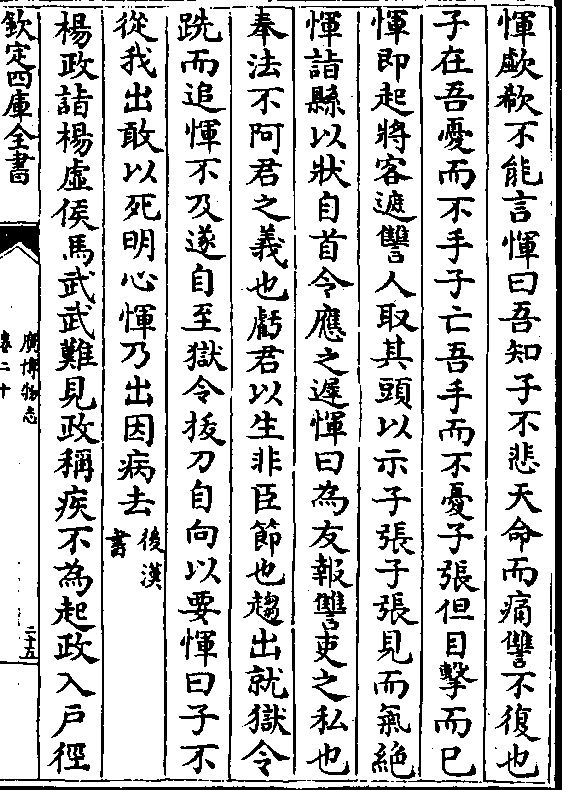 惲歔欷不能言惲曰吾知子不悲天命而痛讐不復也
子在吾憂而不手子亡吾手而不憂子張但目擊而已
惲即起將客遮讐人取其頭以示子張子張見而氣絶
惲詣縣以狀自首令應之遲惲曰為友報讐吏之私也
奉法不阿君之義也虧君以生非臣節也趨出就獄令
跣而追惲不及遂自至獄令拔刀自向以要惲曰子不
從我出敢以死明心惲乃出因病去後漢
書
楊政詣楊虛侯馬武武難見政稱疾不為起政入戶徑
欽定四庫全書
廣博物志
卷二十
二十五